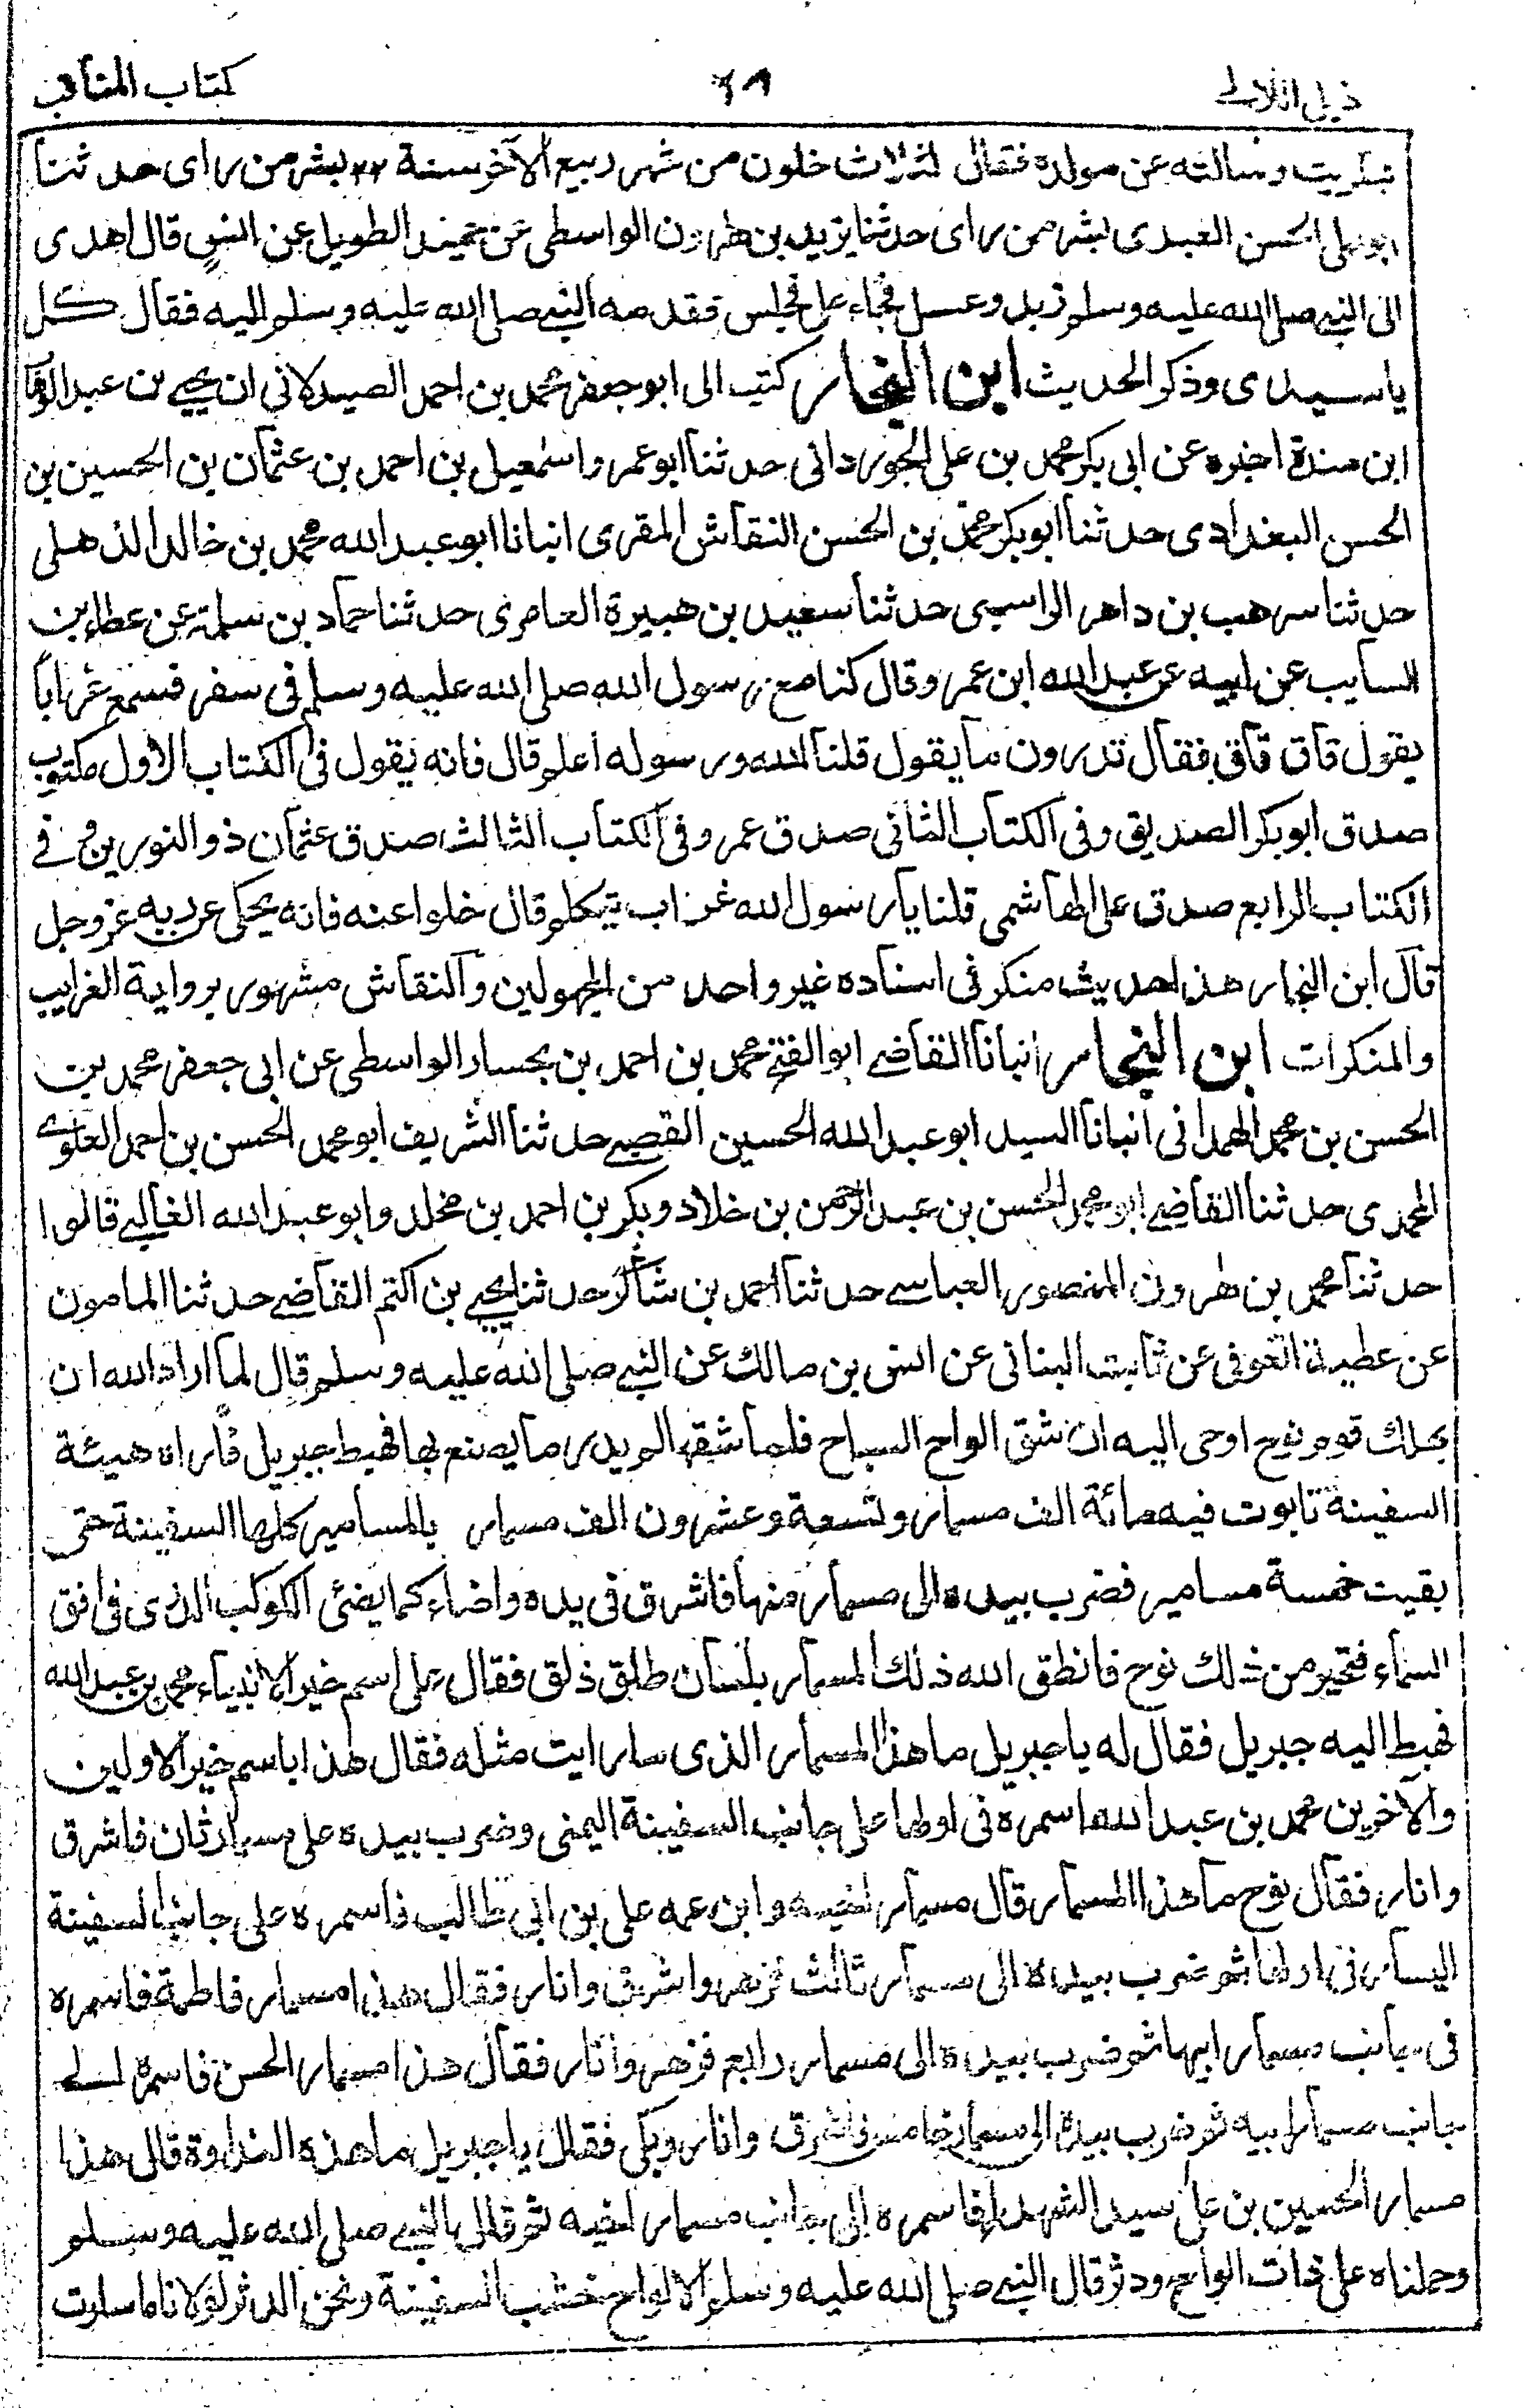 ذيل اللآلي ٦٨ كتاب المناقب
بتكريت وسالته عن مولده فقال لثلاث خلون من شهر ربيع الآخر سنة بسر من راى حدثنا
ابو علي الحسن العبدى بسر من راى حدثنا يزيد بن هرون الواسطى عن حميد الطويل عن انس قال اهدى
الى النبي صلى الله عليه وسلم وعسل فجاء علي فجلس فقدمه النبي صلى الله عليه وسلم اليه فقال كل
ياسيدى وذكر الحديث ابن النجار كتب الى ابو جعفر محمد بن احمد الصيدلاني ان يحيى بن عبد الوهاب
ابن مندة اخبره عن ابى بكر محمد بن على الجوردانى حدثنا ابو عمر واسمعيل بن احمد بن عثمان بن الحسين بن
الحسن البغدادى حدثنا ابو بكر محمد بن الحسن النقاش المقرى انبانا ابو عبد الله محمد بن خالد الذهلى
حدثنا سرهب بن داهر الراسبى حدثنا سعيد بن هبيرة العامرى حدثنا حماد بن سلمة عن عطاء بن
السايب عن ابيه عن عبد الله ابن عمر وقال كنا مع رسول الله صلى الله عليه وسلم فى سفر فسمع غرابا
يقول قاق قاق فقال تدرون ما يقول قلنا الله ورسوله اعلم قال فانه يقول فى الكتاب الاول مكتوب
صدق ابو بكر الصديق وفى الكتاب الثانى صدق عمر وفى الكتاب الثالث صدق عثمان ذو النورين في
الكتاب الرابع صدق على الهاشمى قلنا يا رسول الله غراب يتكلم قال خلوا عنه فانه يحكى عن ربه عز وجل
قال ابن النجار هذا حديث منكر فى اسناده غير واحد من المجهولين والنقاش مشهور برواية الغرايب
والمنكرات ابن النجار انبانا القاضي ابو الفتح محمد بن احمد بن بحسار الواسطى عن ابى جعفر محمد بن
الحسن بن محمد الهمدانى انبانا السيد ابو عبد الله الحسين القصبي حدثنا الشريف ابو محمد الحسن بن احمد العلوي
المحمدى حدثنا القاضي ابو محمد الحسن بن عبد الرحمن بن خلاد وبكر بن احمد بن مخلد وابو عبد الله الغالبي قالوا
حدثنا محمد بن هرون المنصورى العباسي حدثنا احمد بن شاكر حدثنا يحيي بن اكثم القاضي حدثنا المامون
عن عطية العوفى عن ثابت البنانى عن انس بن مالك عن النبي صلى الله عليه وسلم قال لما اراد الله ان
يهلك قوم نوح اوحى اليه ان شق الواح الساج فلما شقها لم يدر ما يصنع بها فهبط جبريل فاراه هيئة
السفينة تابوت فيه مائة الف مسمار وتسعة وعشرون الف مسمار بالمسامير كلها السفينة حتى
بقيت خمسة مسامير فضرب بيده الى مسمار منها فاشرق فى يده واضاء كما يضئى الكوكب الدرى فى افق
السماء فتحير من ذلك نوح فانطق الله ذلك المسمار بلسان طلق ذلق فقال على اسم خير الانبياء محمد بن عبد الله
فهبط اليه جبريل فقال له يا جبريل ما هذا المسمار الذى ما رايت مثله فقال هذا باسم خير الاولين
والآخرين محمد بن عبد الله اسمره فى اولها على جانب السفينة اليمنى وضرب بيده على مسمار ثان فاشرق
وانار فقال نوح ما هذا المسمار قال مسمار اخيه وابن عمه على بن ابى طالب فاسمره على جانب السفينة
اليسار فى اولها ثم ضرب بيده الى مسمار ثالث فزهر واشرق وانار فقال هذا مسمار فاطمة فاسمره
فى جانب مسمار ابيها ثم ضرب بيده الى مسمار رابع فزهر وانار فقال هذا مسمار الحسن فاسمره الى
جانب مسمار ابيه ثم ضرب بيده الى مسمار خامس فاشرق وانار وبكى فقال يا جبريل ما هذه النداوة قال هذا
مسمار الحسين بن على سيد الشهداء فاسمره الى جانب مسمار اخيه ثم قال النبي صلى الله عليه وسلم
وحملناه على ذات الواح ودسر قال النبي صلى الله عليه وسلم الالواح خشب السفينة ونحن الدسر لولانا ما سارت